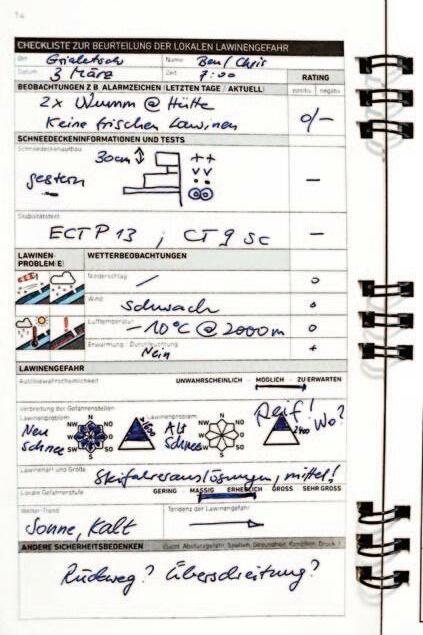 14
CHECKLISTE ZUR BEURTEILUNG DER LOKALEN LAWINENGEFAHR
Ort Grialetsch Name Ben / Chris
Datum 3 März Zeit 7:00 RATING
BEOBACHTUNGEN Z.B. ALARMZEICHEN (LETZTEN TAGE / AKTUELL) positiv negativ
2x Wumm @ Hütte
Keine frischen Lawinen o/-
SCHNEEDECKENINFORMATIONEN UND TESTS
Schneedeckenaufbau
30cm ++
gestern vv
-
Stabilitätstest
ECTP 13 ; CT 9 SC -
LAWINENPROBLEM(E) WETTERBEOBACHTUNGEN
Niederschlag / o
Wind schwach o
Lufttemperatur -10°C @ 2000m o
Erwärmung / Durchfeuchtung Nein +
LAWINENGEFAHR
Auslösewahrscheinlichkeit UNWAHRSCHEINLICH MÖGLICH ZU ERWARTEN
Verbreitung der Gefahrenstellen
Reif! Wo?
Lawinenproblem Neuschnee N NO O SO S SW W NW
Lawinenproblem Altschnee N NO O SO S SW W NW 2400
Lawinenart und Größe Skifahrerauslösungen, mittel!
Lokale Gefahrenstufe GERING MÄSSIG ERHEBLICH GROSS SEHR GROSS
Wetter-Trend Sonne, kalt
Tendenz der Lawinengefahr
ANDERE SICHERHEITSBEDENKEN
Rückweg? Überschreitung?